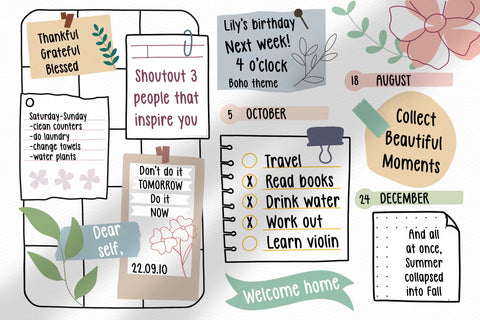 Thankful
Grateful
Blessed
Shoutout 3
people that
inspire you
Saturday-Sunday
-clean counters
-do laundry
-change towels
-water plants
Don't do it
TOMORROW
Do it
NOW
22.09.10
Dear
self,
Lily's birthday
Next week!
4 o'clock
Boho theme
18 AUGUST
5 OCTOBER
Collect
Beautiful
Moments
Travel
X Read books
X Drink water
X Work out
Learn violin
24 DECEMBER
And all
at once,
Summer
collapsed
into Fall
Welcome home